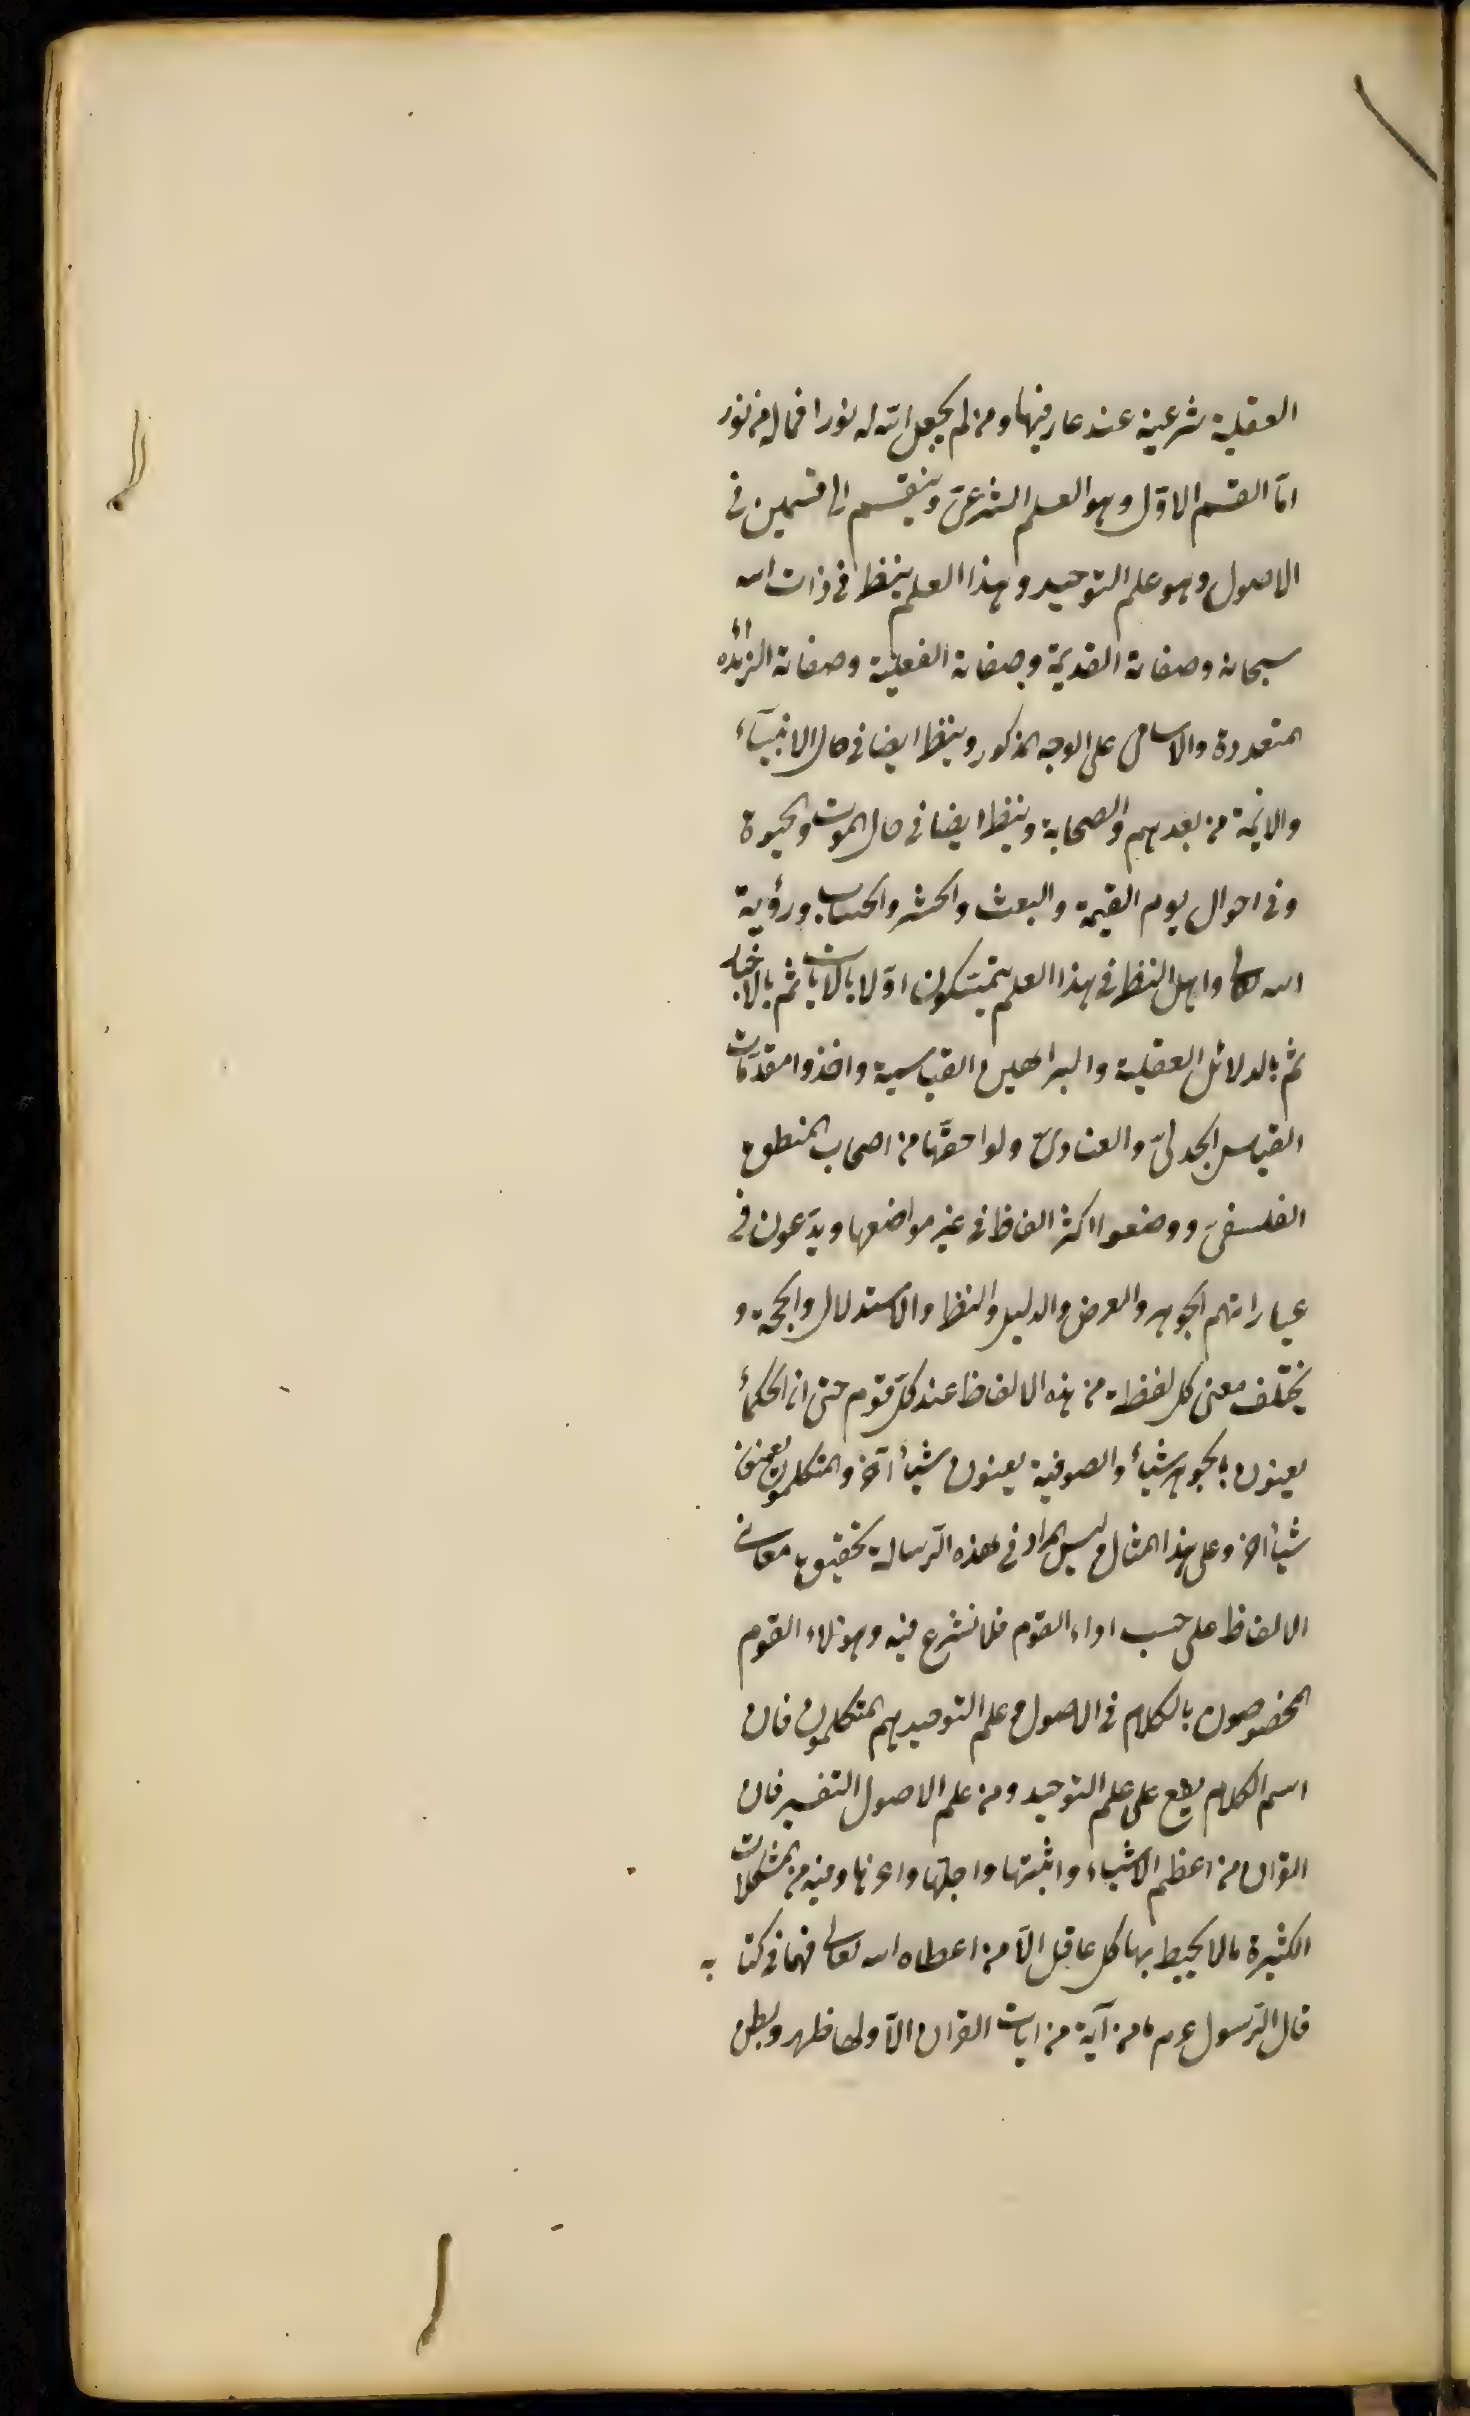 العقلية شرعية عند عارفيها ومن لم يجعل الله له نورا فماله من نور
امّا القسم الاوّل وهو العلم الشرعىّ وينقسم الى قسمين فى
الاصول وهو علم التوحيد وهذا العلم ينظر فى ذات الله
سبحانه وصفاته القديمة وصفاته الفعلية وصفاته
المتعددة والاسامى على الوجه المذكور وينظر ايضا فى حال الانبيآء
والائمة من بعدهم والصحابة وينظر ايضا فى حال الموت والحيوة
وفى احوال يوم القيمة والبعث والحشر والحساب ورؤية
الله تعالى واهل النظر فى هذا العلم يتمسّكون اوّلا بالايات ثم بالاخبار
ثم بالدلائل العقلية والبراهين القياسية واخذوا مقدّمات
القياس الجدلىّ والعنادىّ ولواحقها من اصحاب المنطق
الفلسفىّ ووضعوا اكثر الفاظ فى غير مواضعها ويدّعون فى
عباراتهم الجوهر والعرض والدليل والنظر والاستدلال والحجة و
يختلف معنى كل لفظة من هذه الالفاظ عند كلّ قوم حتى ان الحكماء
يعنون بالجوهر شيأ والصوفية يعنون شيأ آخر والمتكلمون يعنون
شيأ اخر وعلى هذا المثال وليس المراد فى هذه الرّسالة تحقيق معانى
الالفاظ على حسب اراء القوم فلا نشرع فيه وهؤلاء القوم
المخصوصون بالكلام فى الاصول وعلم التوحيد هم المتكلمون فان
اسم الكلام يقع على علم التوحيد ومن علم الاصول التفسير فان
القران من اعظم الاشياء وابينها واجلّها واعزها وفيه من المشكلات
الكثيرة مالا يحيط بها كل عاقل الّا من اعطاه الله تعالى فهما فى كتابه
قال الرّسول عم ما من آية من ايات القران الّا ولها ظهر وبطن